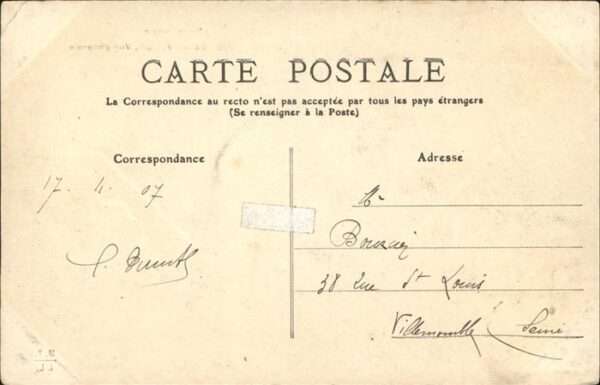 CARTE POSTALE
La Correspondance au recto n'est pas acceptée par tous les pays étrangers
(Se renseigner à la Poste)
Correspondance
Adresse
17. 4. 07
Mr
38 rue St Louis
Villemomble Seine